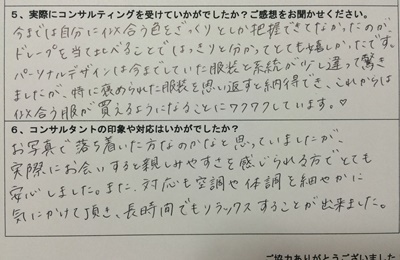 5、実際にコンサルティングを受けていかがでしたか？ご感想をお聞かせください。
今までは自分に似合う色をざっくりとしか把握できてなかったのが、
ドレープを当て比べることではっきりと分かってとても嬉しかったです。
パーソナルデザインは今までしていた服装と系統が少し違って驚き
ましたが、特に褒められた服装を思い返すと納得でき、これからは
似合う服が買えるようになることにワクワクしています。♡
6、コンサルタントの印象や対応はいかがでしたか？
お写真で落ち着いた方なのかなと思っていましたが、
実際にお会いすると親しみやすさを感じられる方でとても
安心しました。また、対応も空調や体調を細やかに
気にかけて頂き、長時間でもリラックスすることが出来ました。
ご協力ありがとうございました